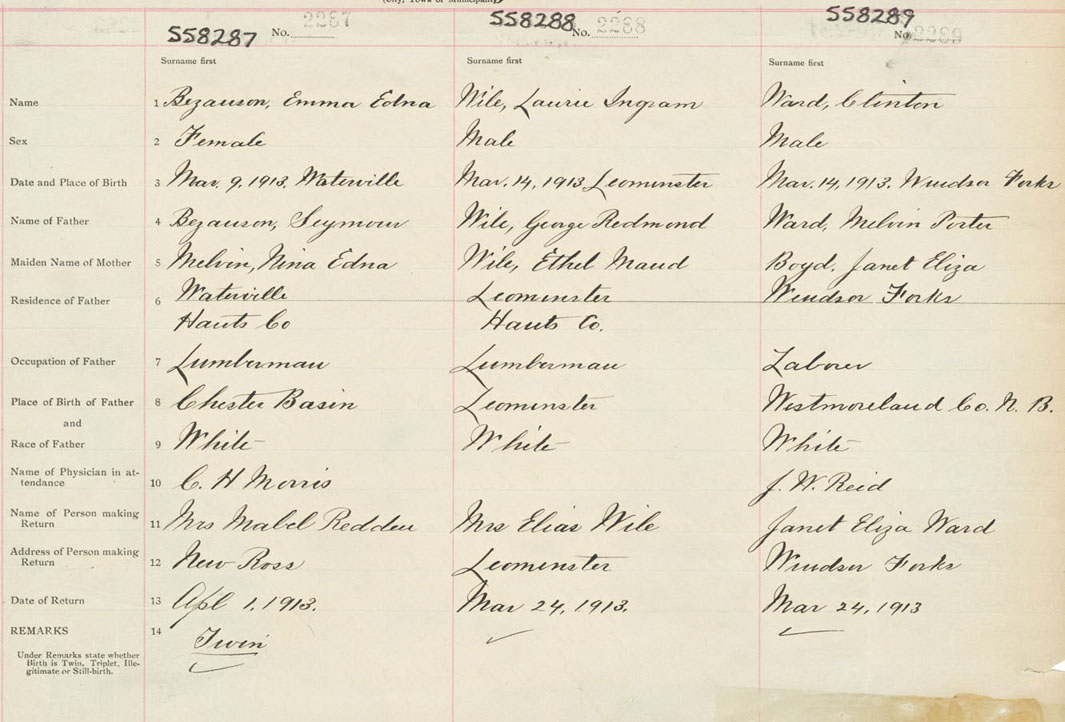 (City, Town or Municipality)
558287 No. 2287 558288 No. 2268 558289 No. 2269
Surname first Surname first Surname first
Name 1 Bezanson, Emma Edna Wile, Laurie Ingram Ward, Clinton
Sex 2 Female Male Male
Date and Place of Birth 3 Mar. 9, 1913, Waterville Mar. 14, 1913 Leominster Mar. 14, 1913. Windsor Forks
Name of Father 4 Bezanson, Seymour Wile, George Redmond Ward, Melvin Porter
Maiden Name of Mother 5 Melvin, Nina Edna Wile, Ethel Maud Boyd, Janet Eliza
Residence of Father 6 Waterville Leominster Windsor Forks
Hants Co Hants Co.
Occupation of Father 7 Lumberman Lumberman Laborer
Place of Birth of Father 8 Chester Basin Leominster Westmoreland Co. N. B.
and
Race of Father 9 White White White
Name of Physician in at-
tendance 10 C. H Morris J. W. Reid
Name of Person making
Return 11 Mrs Mabel Redden Mrs Elias Wile Janet Eliza Ward
Address of Person making
Return 12 New Ross Leominster Windsor Forks
Date of Return 13 Apl 1, 1913. Mar 24, 1913. Mar 24, 1913
REMARKS 14 Twin
Under Remarks state whether
Birth is Twin, Triplet, Ille-
gitimate or Still-birth.